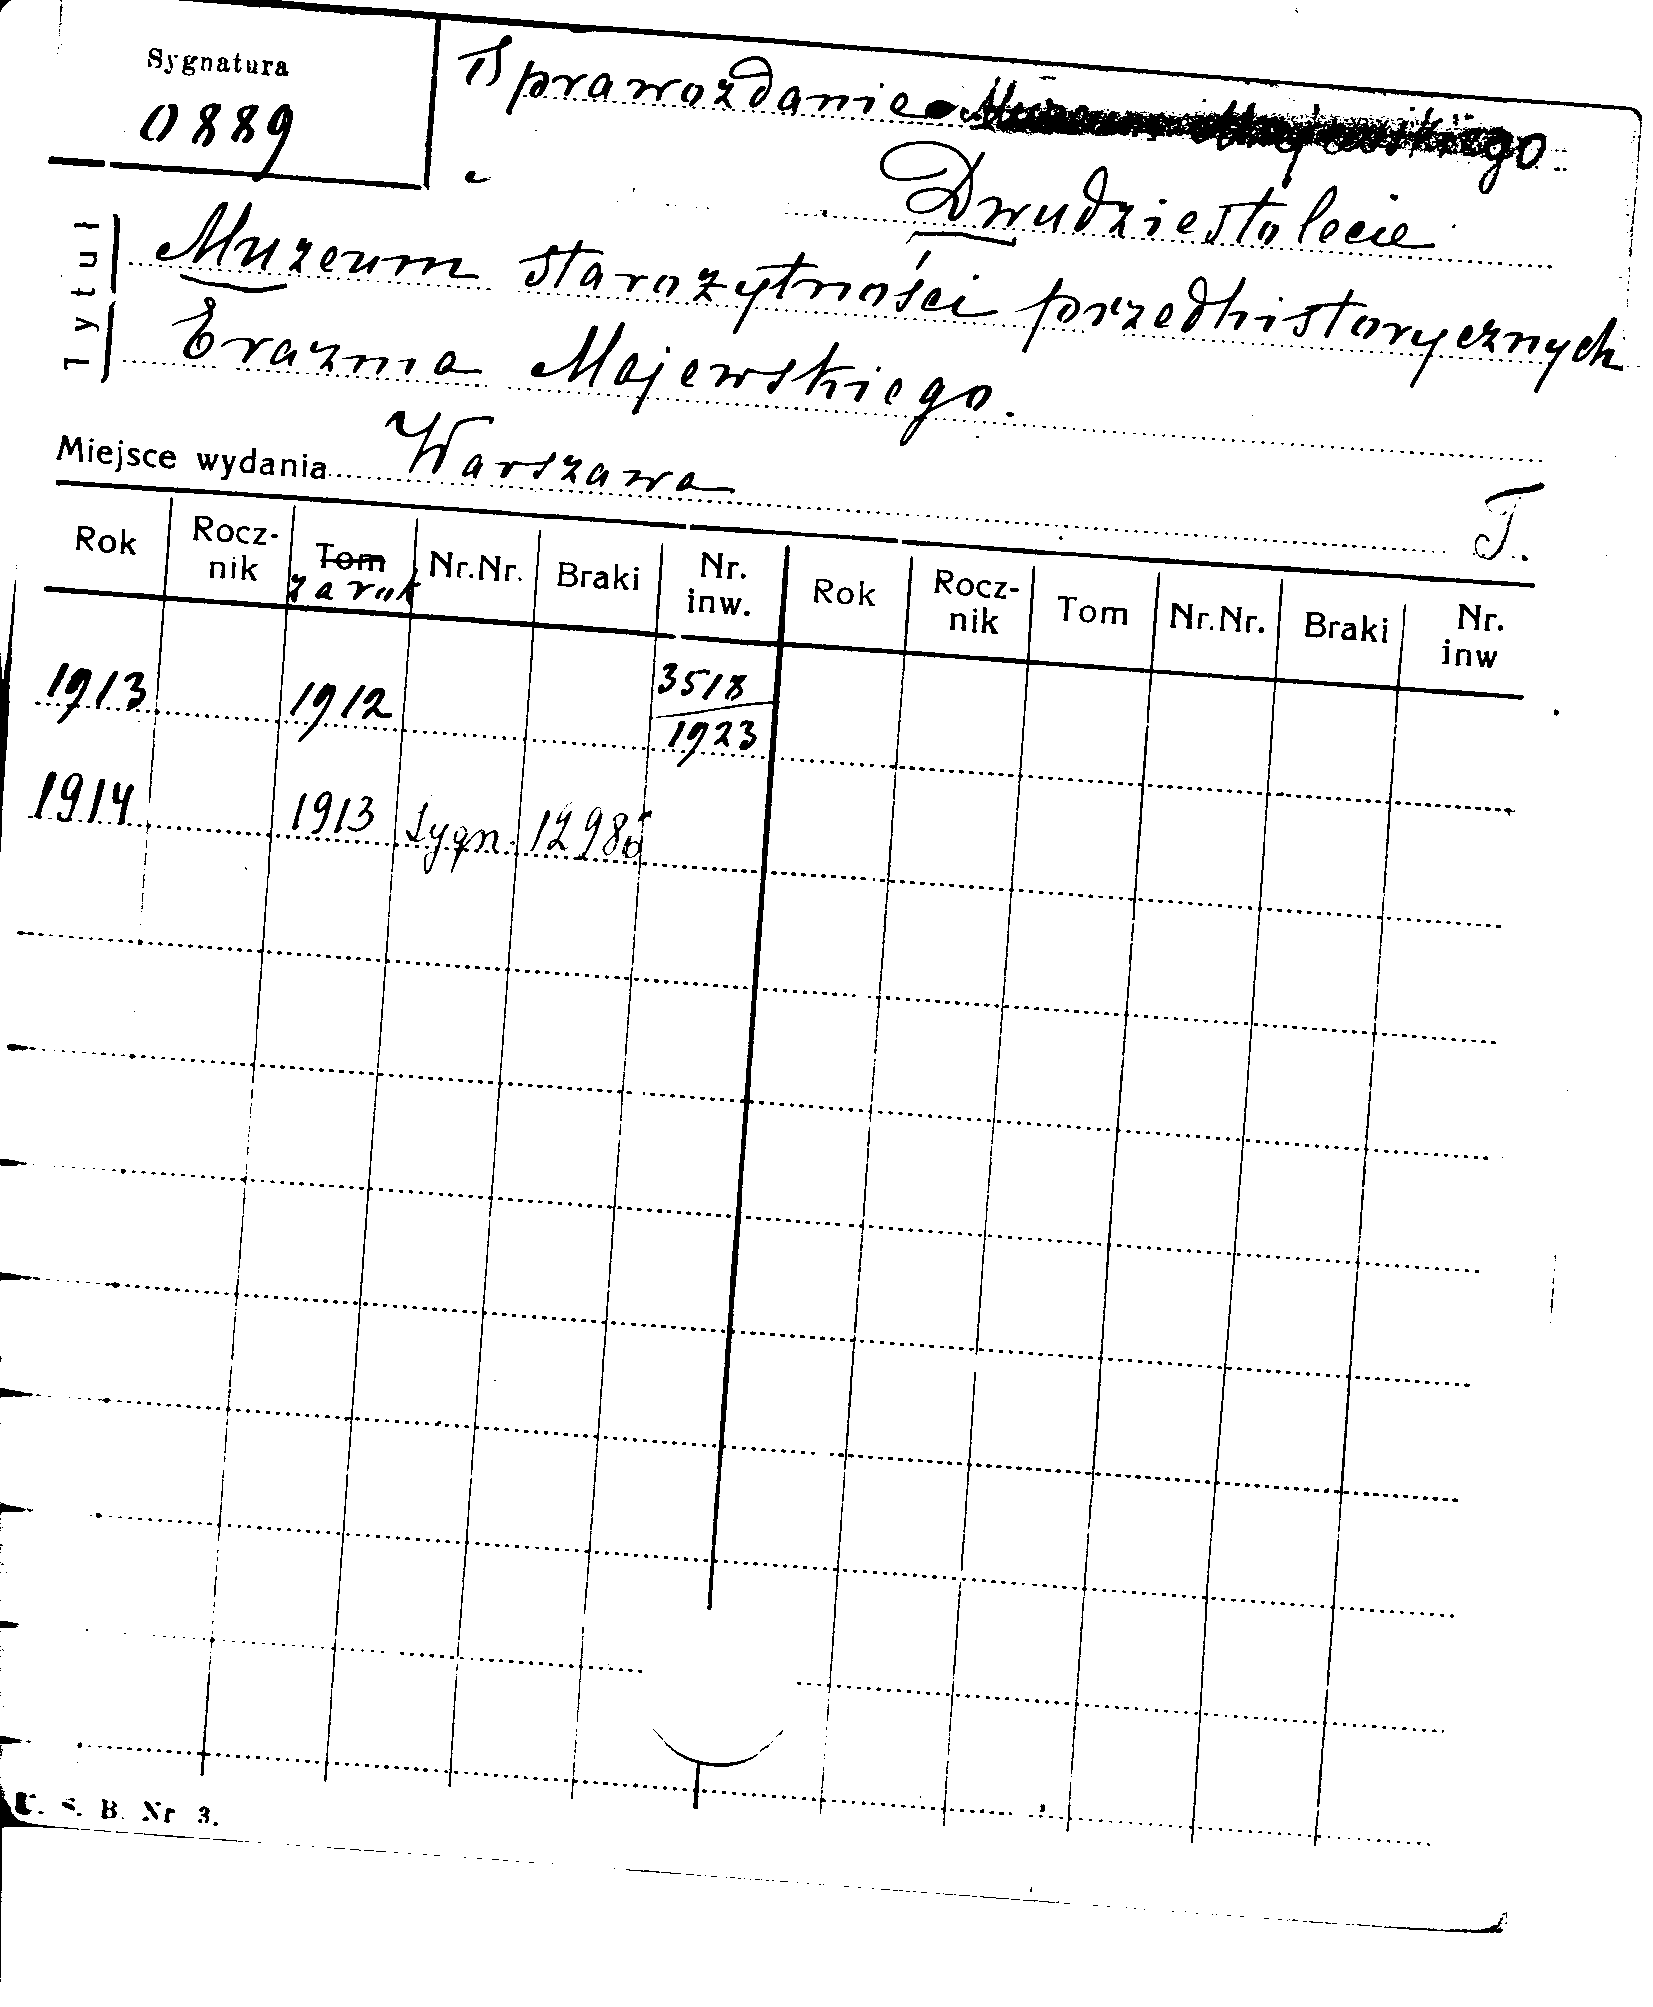 Sygnatura
0889
Sprawozdanie Muzeum Majewskiego
Dwudziestolecie
Tytuł
Muzeum starożytności przedhistorycznych
Erazma Majewskiego.
Miejsce wydania Warszawa
T.
Rok Rocz-nik Tom za rok Nr.Nr. Braki Nr. inw. Rok Rocz-nik Tom Nr.Nr. Braki Nr. inw
1913 1912 3518/1923
1914 1913 sygn. 12986
U. S. B. Nr 3.